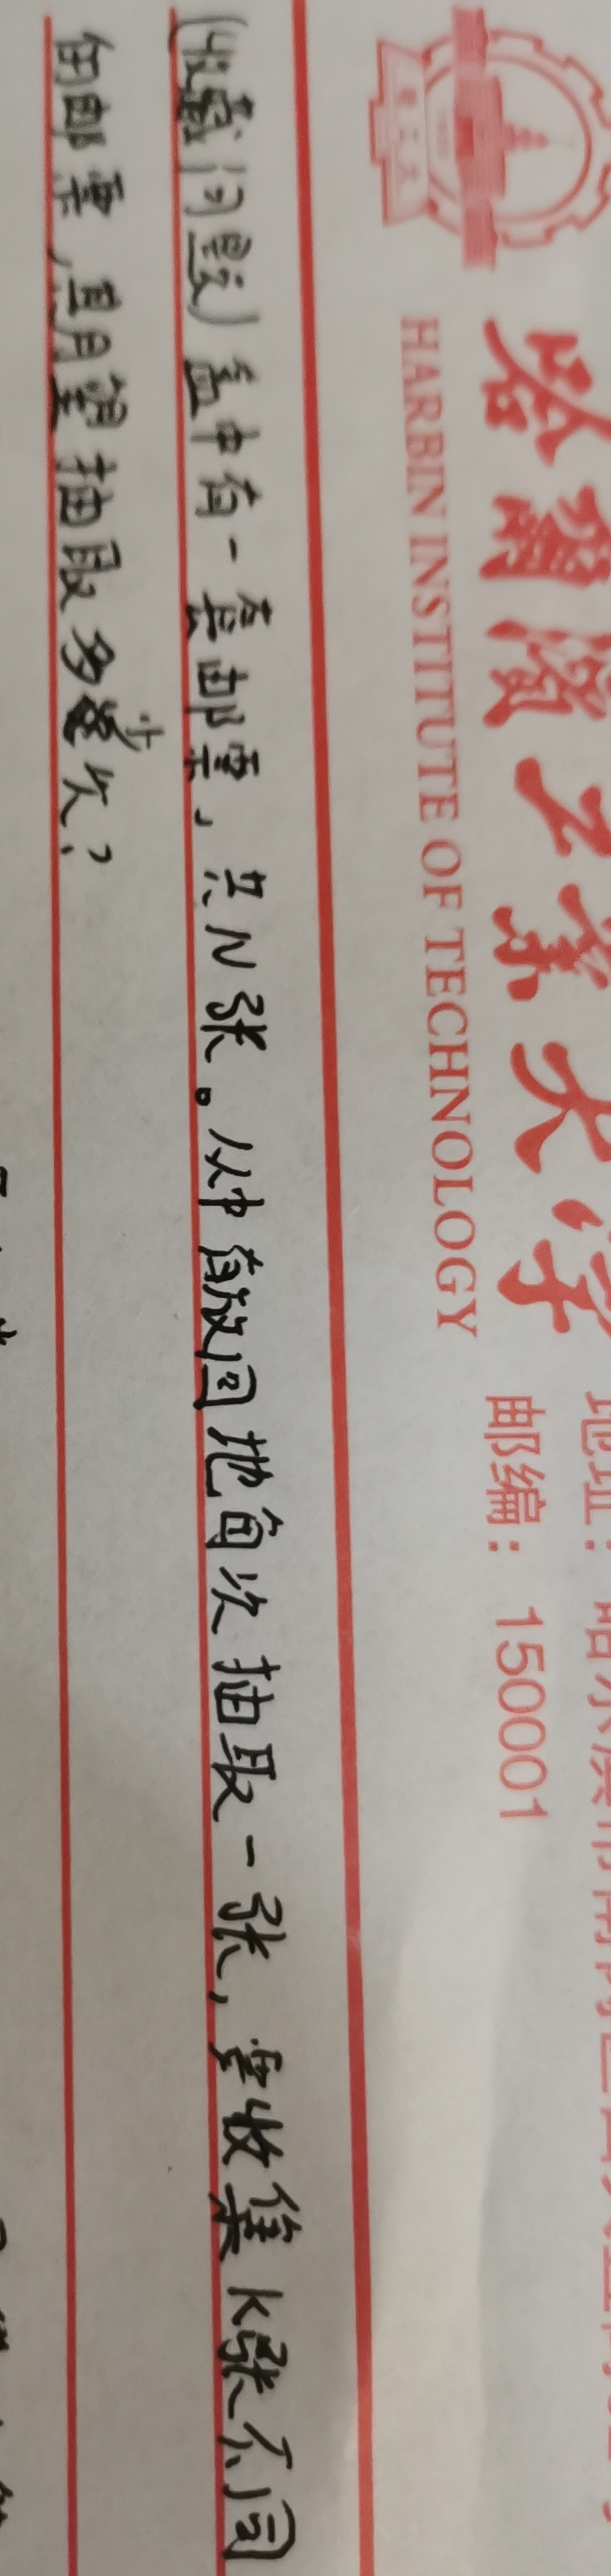 哈爾濱工業大学
HARBIN INSTITUTE OF TECHNOLOGY
邮编：150001
(收藏问题) 盒中有一套邮票，共N张。从中有放回地每次抽取一张，要收集K张不同
的邮票，期望抽取多少次？